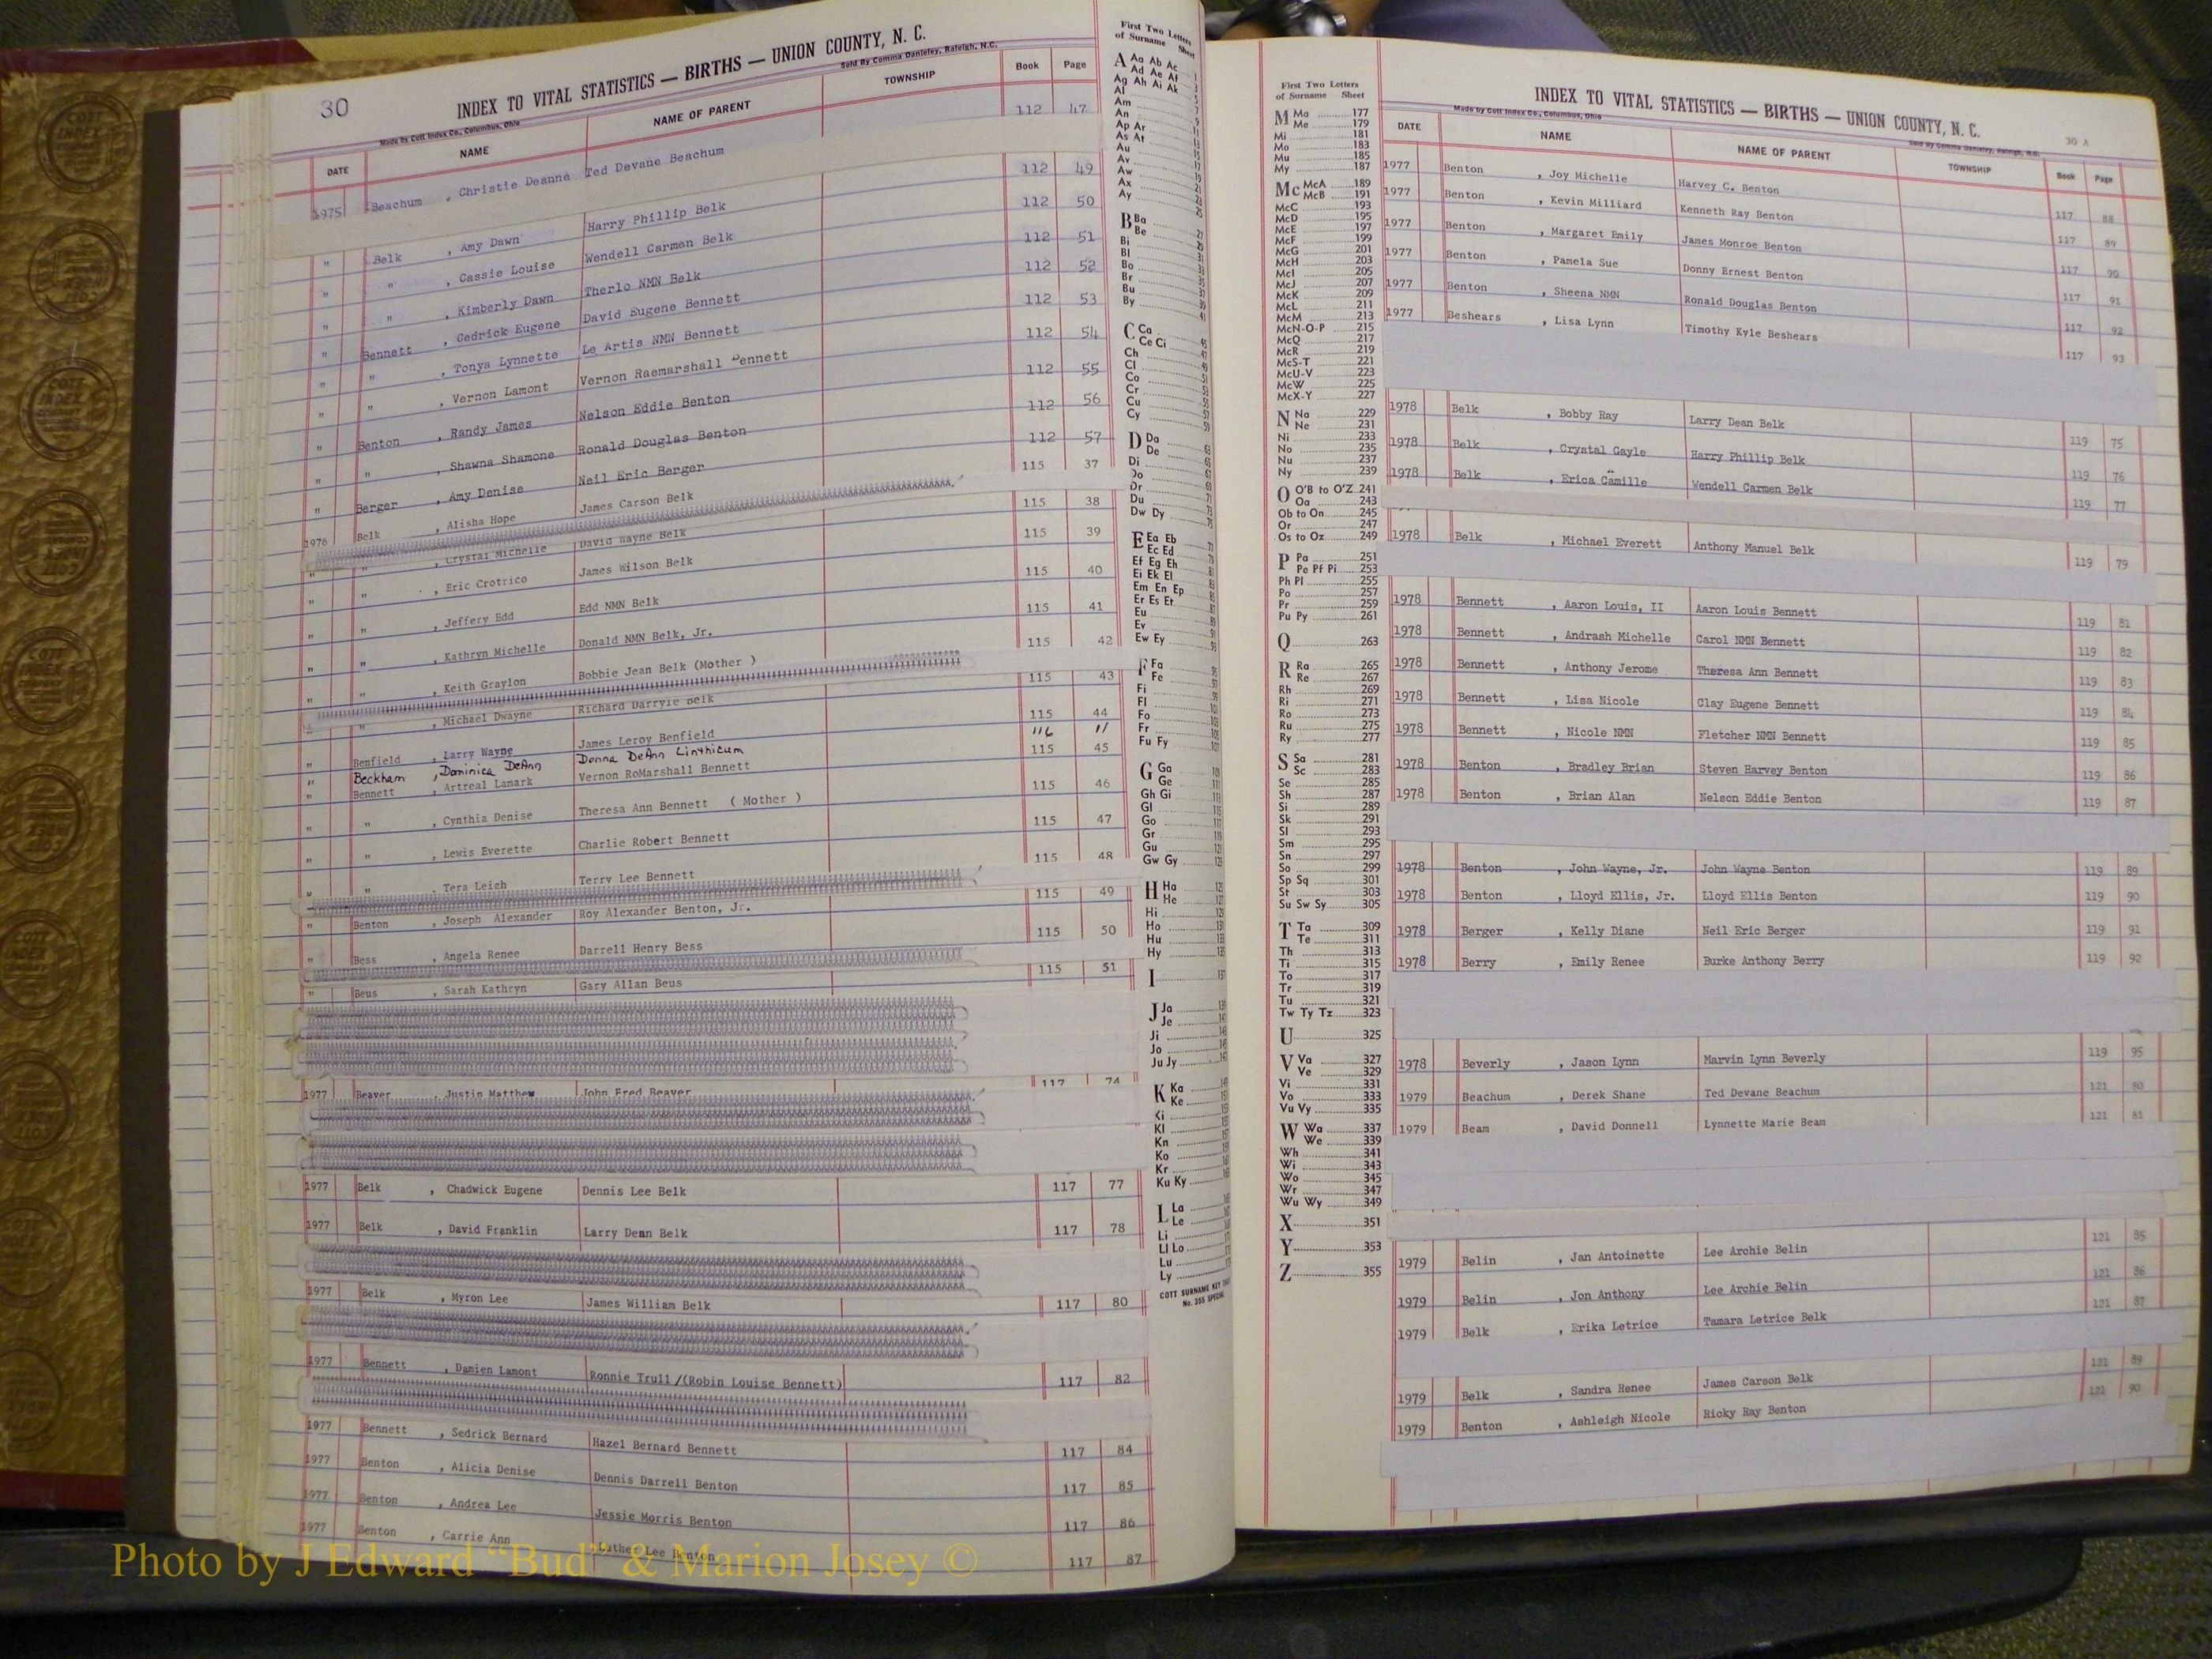 30
INDEX TO VITAL STATISTICS — BIRTHS — UNION COUNTY, N. C.
Made by Cott Index Co., Columbus, Ohio
Sold By Comma Danieley, Raleigh, N.C.
DATE NAME NAME OF PARENT TOWNSHIP Book Page
1975 Beachum , Christie Deanne Ted Devane Beachum 112 47
" Belk , Amy Dawn Harry Phillip Belk 112 49
" " , Cassie Louise Wendell Carmen Belk 112 50
" " , Kimberly Dawn Therlo NMN Belk 112 51
" Bennett , Cedrick Eugene David Eugene Bennett 112 52
" " , Tonya Lynnette Le Artis NMN Bennett 112 53
" " , Vernon Lamont Vernon Raemarshall Bennett 112 54
" Benton , Randy James Nelson Eddie Benton 112 55
" " , Shawna Shamone Ronald Douglas Benton 112 56
" Berger , Amy Denise Neil Eric Berger 112 57
1976 Belk , Alisha Hope James Carson Belk 115 37
" " , Crystal Michelle David Wayne Belk 115 38
" " , Eric Crotrico James Wilson Belk 115 39
" " , Jeffery Edd Edd NMN Belk 115 40
" " , Kathryn Michelle Donald NMN Belk, Jr. 115 41
" " , Keith Graylon Bobbie Jean Belk (Mother ) 115 42
" " , Michael Dwayne Richard Darryle Belk 115 43
" Benfield , Larry Wayne James Leroy Benfield 115 44
" Beckham , Dominica DeAnn Donna DeAnn Linthicum 116 11
" Bennett , Artreal Lamark Vernon RoMarshall Bennett 115 45
" " , Cynthia Denise Theresa Ann Bennett ( Mother ) 115 46
" " , Lewis Everette Charlie Robert Bennett 115 47
" " , Tera Leigh Terry Lee Bennett 115 48
" Benton , Joseph Alexander Roy Alexander Benton, Jr. 115 49
" Bess , Angela Renee Darrell Henry Bess 115 50
" Beus , Sarah Kathryn Gary Allan Beus 115 51
1977 Beaver , Justin Matthew John Fred Beaver 117 74
1977 Belk , Chadwick Eugene Dennis Lee Belk 117 77
1977 Belk , David Franklin Larry Dean Belk 117 78
1977 Belk , Myron Lee James William Belk 117 80
1977 Bennett , Damien Lamont Ronnie Trull/(Robin Louise Bennett) 117 82
1977 Bennett , Sedrick Bernard Hazel Bernard Bennett 117 84
1977 Benton , Alicia Denise Dennis Darrell Benton 117 85
1977 Benton , Andrea Lee Jessie Morris Benton 117 86
1977 Benton , Carrie Ann Luther Lee Benton 117 87
First Two Letters
of Surname Sheet
A Aa Ab Ac 1
Ad Ae Af 3
Ag Ah Ai Ak
Al
Am
An
Ap Ar
As At
Au
Av
Aw
Ax
Ay
B Ba
Be
Bi
Bl
Bo
Br
Bu
By
C Ca
Ce Ci
Ch
Cl
Co
Cr
Cu
Cy
D Da
De
Di
Do
Dr
Du
Dw Dy
E Ea Eb
Ec Ed
Ef Eg Eh
Ei Ek El
Em En Ep
Er Es Et
Eu
Ev
Ew Ey
F Fa
Fe
Fi
Fl
Fo
Fr
Fu Fy
G Ga
Ge
Gh Gi
Gl
Go
Gr
Gu
Gw Gy
H Ha
He
Hi
Ho
Hu
Hy
I
J Ja
Je
Ji
Jo
Ju Jy
K Ka
Ke
Ki
Kl
Kn
Ko
Kr
Ku Ky
L La
Le
Li
Ll Lo
Lu
Ly
COTT SURNAME KEY
No. 355 SPECIAL
First Two Letters
of Surname Sheet
M Ma 177
Me 179
Mi 181
Mo 183
Mu 185
My 187
Mc McA 189
McB 191
McC 193
McD 195
McE 197
McF 199
McG 201
McH 203
McI 205
McJ 207
McK 209
McL 211
McM 213
McN-O-P 215
McQ 217
McR 219
McS-T 221
McU-V 223
McW 225
McX-Y 227
N Na 229
Ne 231
Ni 233
No 235
Nu 237
Ny 239
O O'B to O'Z 241
Oa 243
Ob to On 245
Or 247
Os to Oz 249
P Pa 251
Pe Pf Pi 253
Ph Pl 255
Po 257
Pr 259
Pu Py 261
Q 263
R Ra 265
Re 267
Rh 269
Ri 271
Ro 273
Ru 275
Ry 277
S Sa 281
Sc 283
Se 285
Sh 287
Si 289
Sk 291
Sl 293
Sm 295
Sn 297
So 299
Sp Sq 301
St 303
Su Sw Sy 305
T Ta 309
Te 311
Th 313
Ti 315
To 317
Tr 319
Tu 321
Tw Ty Tz 323
U 325
V Va 327
Ve 329
Vi 331
Vo 333
Vu Vy 335
W Wa 337
We 339
Wh 341
Wi 343
Wo 345
Wr 347
Wu Wy 349
X 351
Y 353
Z 355
INDEX TO VITAL STATISTICS — BIRTHS — UNION COUNTY, N. C.
Made by Cott Index Co., Columbus, Ohio
Sold By Comma Danieley, Raleigh, N.C.
30 A
DATE NAME NAME OF PARENT TOWNSHIP Book Page
1977 Benton , Joy Michelle Harvey C. Benton 117 88
1977 Benton , Kevin Milliard Kenneth Ray Benton 117 89
1977 Benton , Margaret Emily James Monroe Benton 117 90
1977 Benton , Pamela Sue Donny Ernest Benton 117 91
1977 Benton , Sheena NMN Ronald Douglas Benton 117 92
1977 Beshears , Lisa Lynn Timothy Kyle Beshears 117 93
1978 Belk , Bobby Ray Larry Dean Belk 119 75
1978 Belk , Crystal Gayle Harry Phillip Belk 119 76
1978 Belk , Erica Camille Wendell Carmen Belk 119 77
1978 Belk , Michael Everett Anthony Manuel Belk 119 79
1978 Bennett , Aaron Louis, II Aaron Louis Bennett 119 81
1978 Bennett , Andrash Michelle Carol NMN Bennett 119 82
1978 Bennett , Anthony Jerome Theresa Ann Bennett 119 83
1978 Bennett , Lisa Nicole Clay Eugene Bennett 119 84
1978 Bennett , Nicole NMN Fletcher NMN Bennett 119 85
1978 Benton , Bradley Brian Steven Harvey Benton 119 86
1978 Benton , Brian Alan Nelson Eddie Benton 119 87
1978 Benton , John Wayne, Jr. John Wayne Benton 119 89
1978 Benton , Lloyd Ellis, Jr. Lloyd Ellis Benton 119 90
1978 Berger , Kelly Diane Neil Eric Berger 119 91
1978 Berry , Emily Renee Burke Anthony Berry 119 92
1978 Beverly , Jason Lynn Marvin Lynn Beverly 119 95
1979 Beachum , Derek Shane Ted Devane Beachum 121 80
1979 Beam , David Donnell Lynnette Marie Beam 121 81
1979 Belin , Jan Antoinette Lee Archie Belin 121 85
1979 Belin , Jon Anthony Lee Archie Belin 121 86
1979 Belk , Erika Letrice Tamara Letrice Belk 121 87
1979 Belk , Sandra Renee James Carson Belk 121 89
1979 Benton , Ashleigh Nicole Ricky Ray Benton 121 90
Photo by J Edward "Bud" & Marion Josey ©